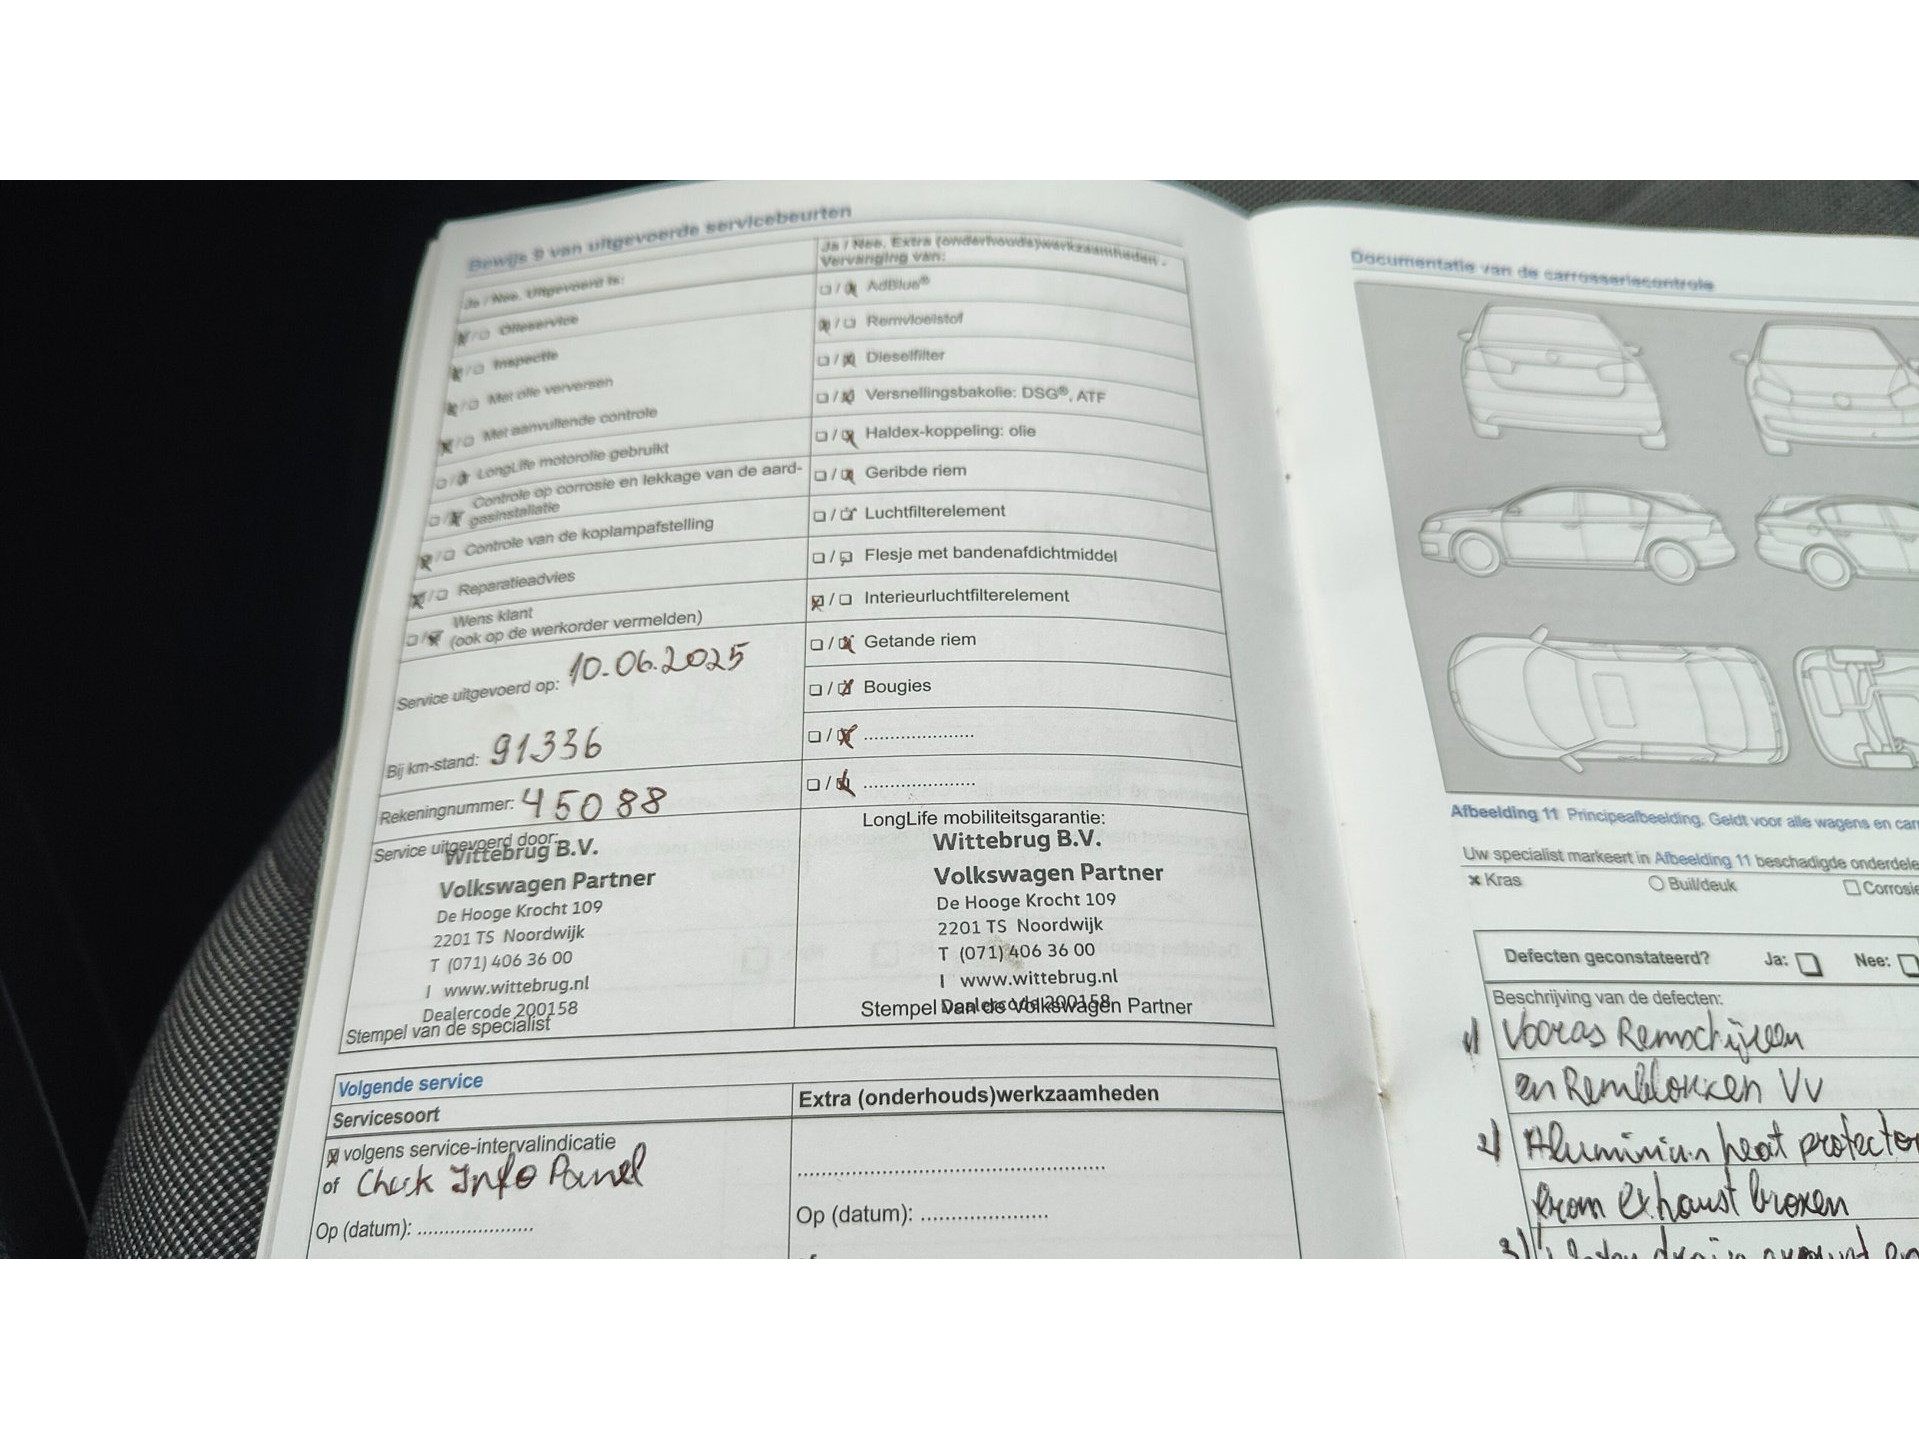 Bewijs 9 van uitgevoerde servicebeurten
Ja / Nee. Uitgevoerd is:
Olieservice
Inspectie
Met olie verversen
Met aanvullende controle
LongLife motorolie gebruikt
Controle op corrosie en lekkage van de aard-
gasinstallatie
Controle van de koplampafstelling
Reparatieadvies
Wens klant
(ook op de werkorder vermelden)
Service uitgevoerd op: 10.06.2025
Bij km-stand: 91336
Rekeningnummer: 45088
Service uitgevoerd door:
Wittebrug B.V.
Volkswagen Partner
De Hooge Krocht 109
2201 TS Noordwijk
T (071) 406 36 00
I www.wittebrug.nl
Dealercode 200158
Stempel van de specialist
Ja / Nee. Extra (onderhouds)werkzaamheden -
Vervanging van:
AdBlue®
Remvloeistof
Dieselfilter
Versnellingsbakolie: DSG®, ATF
Haldex-koppeling: olie
Geribde riem
Luchtfilterelement
Flesje met bandenafdichtmiddel
Interieurluchtfilterelement
Getande riem
Bougies
LongLife mobiliteitsgarantie:
Wittebrug B.V.
Volkswagen Partner
De Hooge Krocht 109
2201 TS Noordwijk
T (071) 406 36 00
I www.wittebrug.nl
Dealercode 200158
Stempel van de Volkswagen Partner
Volgende service
Servicesoort
volgens service-intervalindicatie
of Check Info Panel
Op (datum):
Extra (onderhouds)werkzaamheden
Op (datum):
Documentatie van de carrosseriecontrole
Afbeelding 11 Principeafbeelding. Geldt voor alle wagens en
Uw specialist markeert in Afbeelding 11 beschadigde
Kras Buil/deuk
Defecten geconstateerd? Ja: Nee:
Beschrijving van de defecten:
1) Vooras Remschijven
en Remblokken VV
2) Aluminium heat protector
from exhaust broken
3)